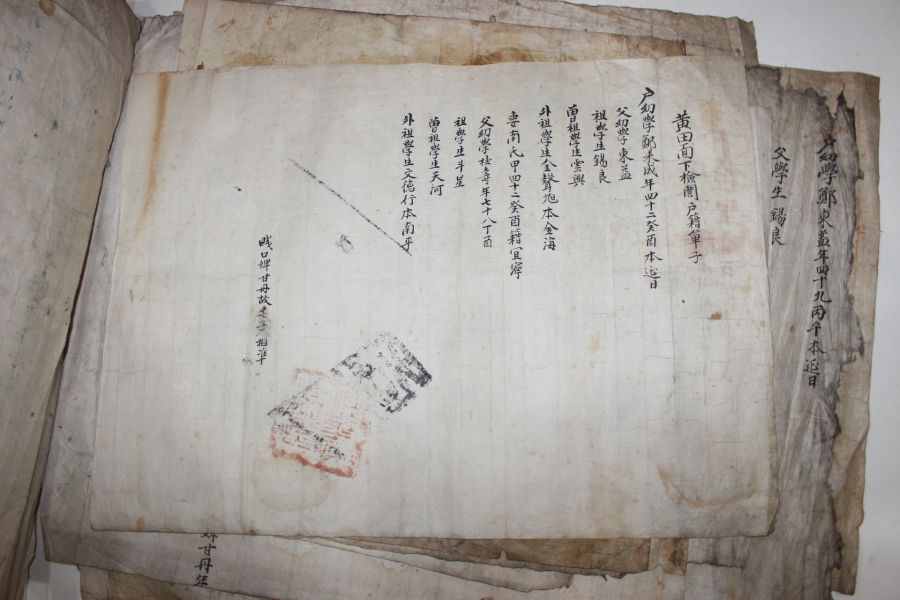 戶幼學鄭東益年四十九丙午本延日
父學生 錫良
黃田面下檢戶籍單子
戶幼學鄭来成年四十二癸酉本延日
父幼學東益
祖學生錫良
曾祖學生雲興
外祖學生金聲旭本金海
妻南氏甲四十二癸酉籍宜寧
父幼學桂壽年七十八丁酉
祖學生斗星
曾祖學生天河
外祖學生文德行本南平
賤口婢甘丹故相準
婢甘丹年